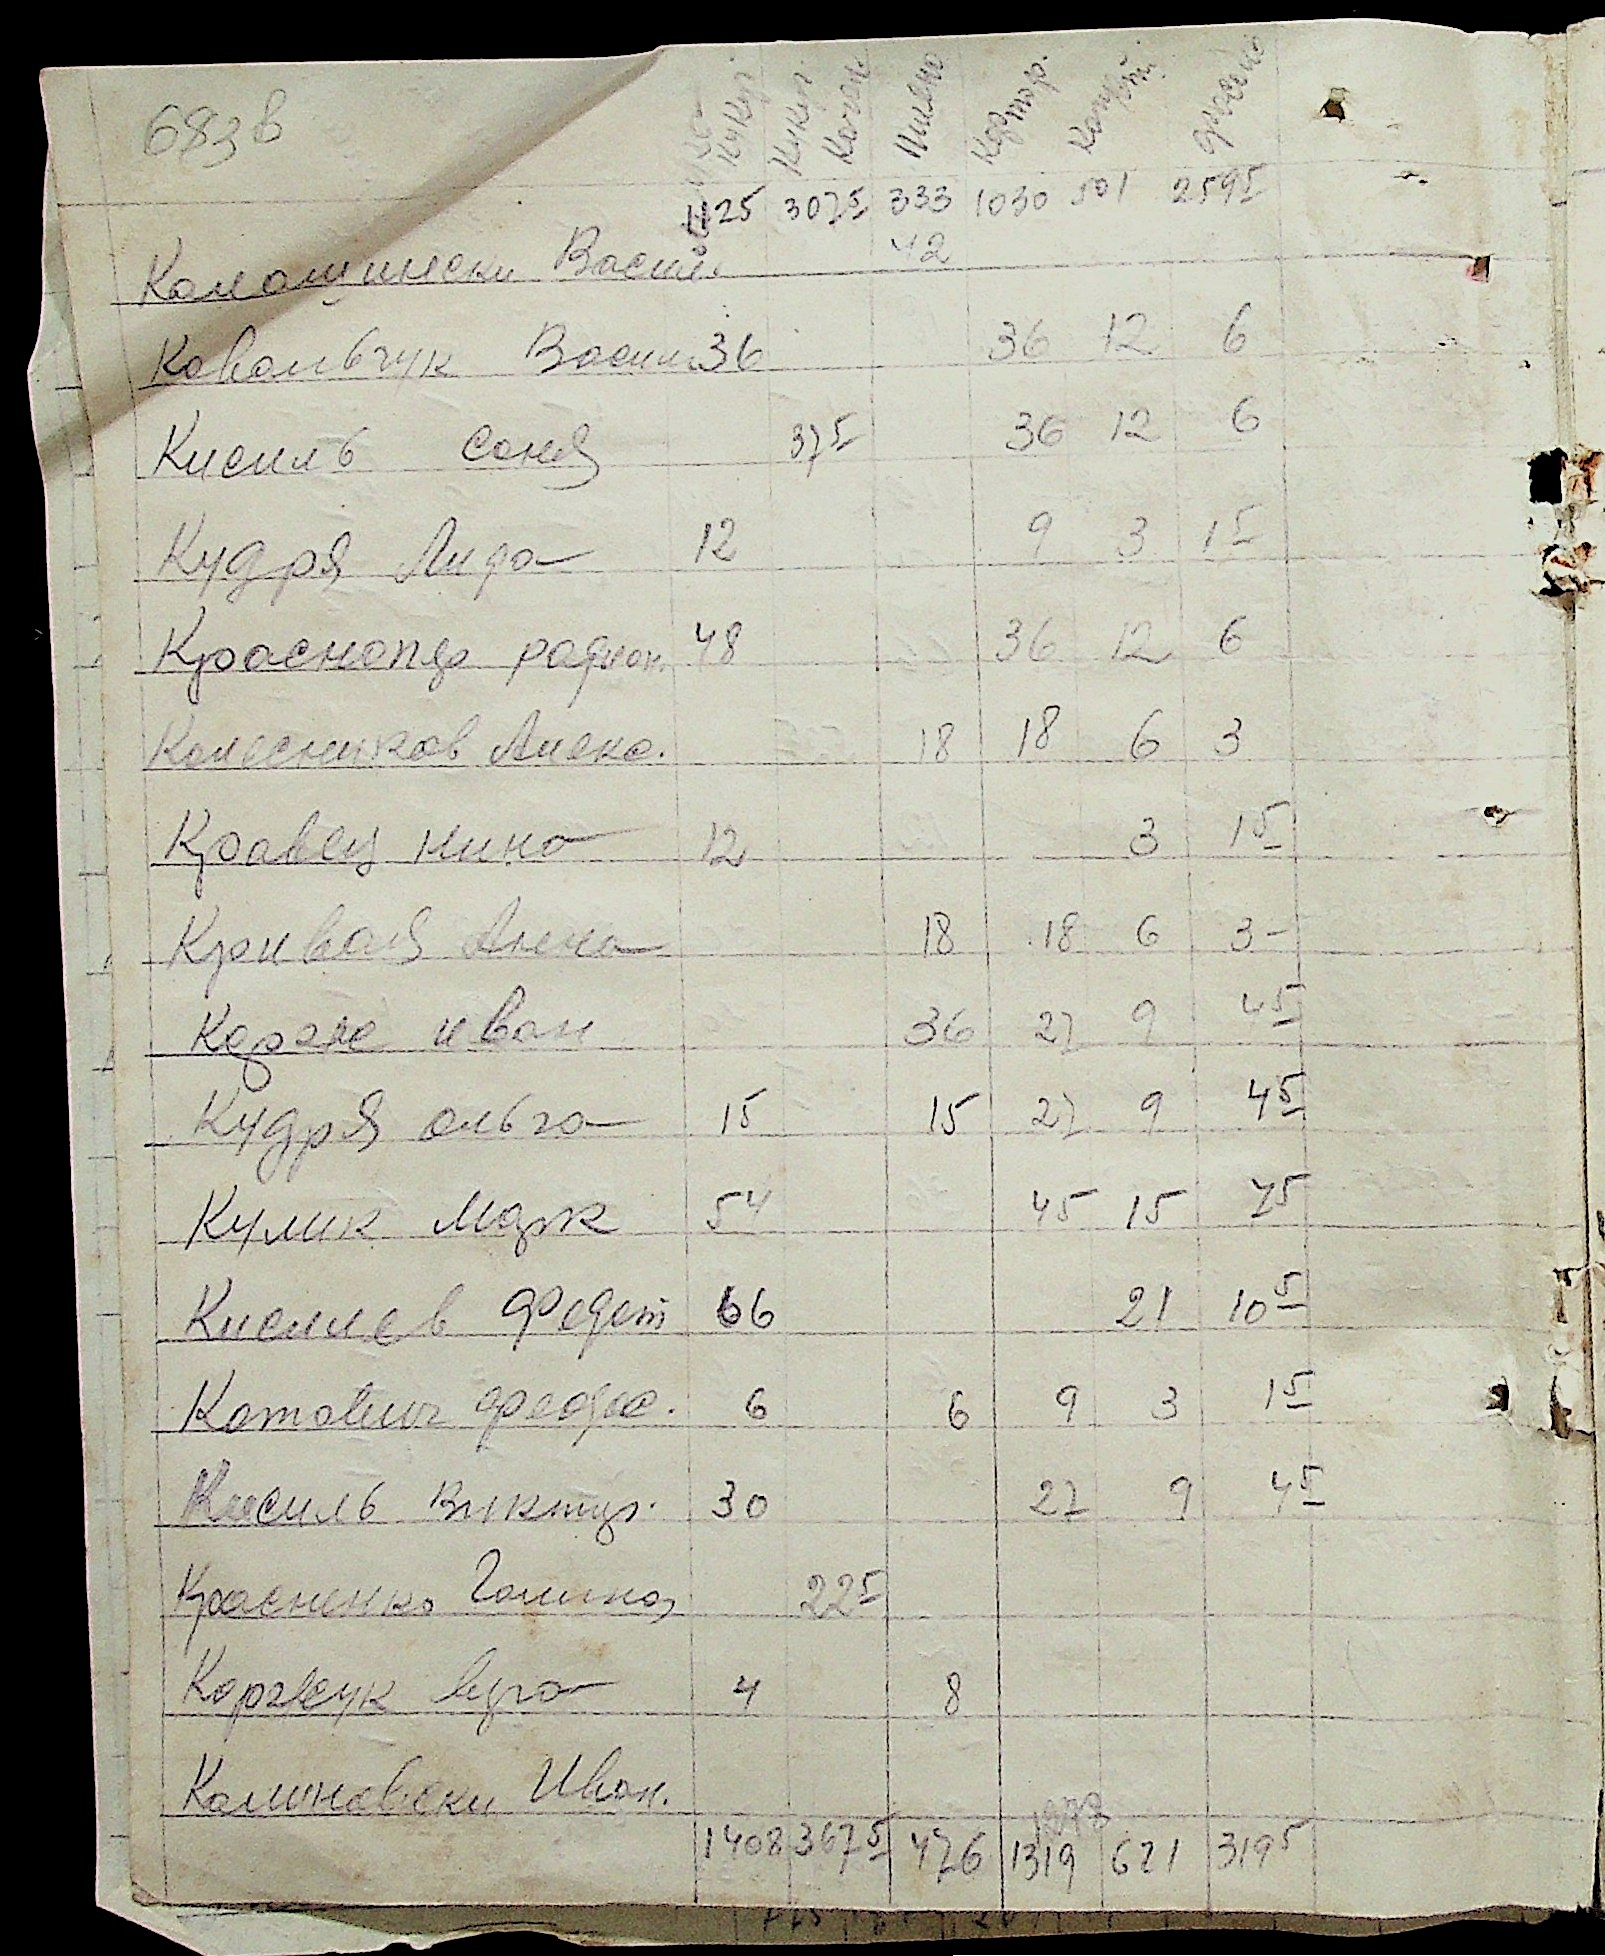 683 в
Кукур. Кукур. Качан. Пшено Картоф. Конфет.
1125 3075 333 1030 501 2595
Васил. 42
Ковальчук Васил. 36 36 12 6
Кисиль Соня 375 36 12 6
Кудря Лида 12 9 3 15
Краснопер родион. 48 36 12 6
Колесников Алекс. 18 18 6 3
Кравец Нина 12 3 15
Кривая Анна 18 18 6 3-
иван 36 27 9 45
Кудря ольга 15 15 27 9 45
Кулик Марк 54 45 15 75
Киселев Федот 66 21 105
Котович федос. 6 6 9 3 15
Кисиль Виктор. 30 27 9 45
Красненко Галина 225
Корчсук вера 4 8
Калиновски Иван.
1273
1408 3675 476 1319 621 3195